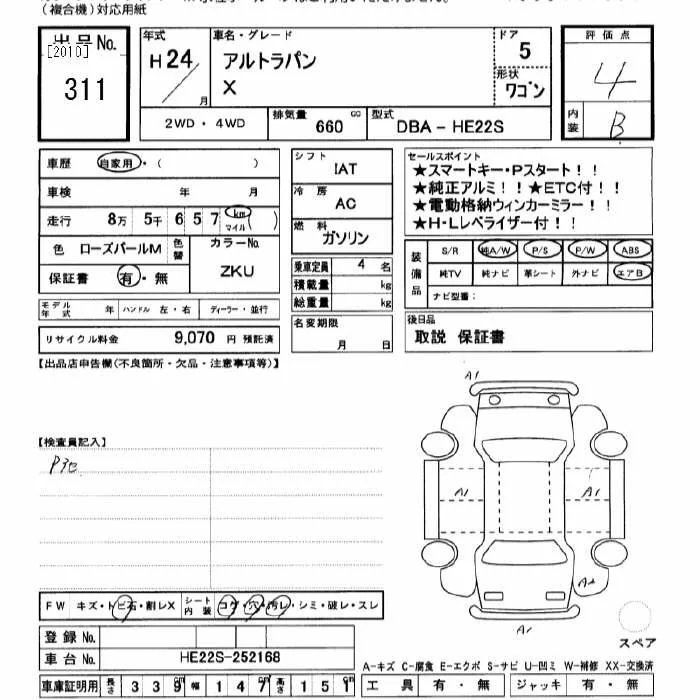 (複合機)対応用紙
出品No.
[2010]
311
年式
H24
月
車名・グレード
アルトラパン
X
ドア
5
形状
ワゴン
評価点
4
内装
B
2WD・4WD
排気量
660
cc
型式
DBA - HE22S
車歴
自家用・( )
車検 年 月
走行 8万 5千 6 5 7 km マイル ( )
色 ローズパールM
色替
カラーNo.
ZKU
保証書 有・無
モデル年式 年
ハンドル 左・右
ディーラー・並行
リサイクル料金 9,070 円 預託済
シフト
IAT
冷房
AC
燃料
ガソリン
乗車定員 4 名
積載量 kg
総重量 kg
名変期限
月 日
セールスポイント
★スマートキー・Pスタート!!
★純正アルミ!!★ETC付!!
★電動格納ウィンカーミラー!!
★H・Lレベライザー付!!
装備品
S/R 純A/W P/S P/W ABS
純TV 純ナビ 革シート 外ナビ エアB
ナビ型番:
後日品
取説 保証書
【出品店申告欄(不良箇所・欠品・注意事項等)】
【検査員記入】
A1
A1
A1
A2
A1
スペア
FW キズ・トビ石・割レX
シート内装
コゲ・穴・汚レ・シミ・破レ・スレ
登録No.
車台No. HE22S-252168
車庫証明用 長さ 3 3 9 cm 幅 1 4 7 cm 高さ 1 5 1 cm
A-キズ C-腐食 E-エクボ S-サビ U-凹ミ W-補修 XX-交換済
工具 有・無
ジャッキ 有・無